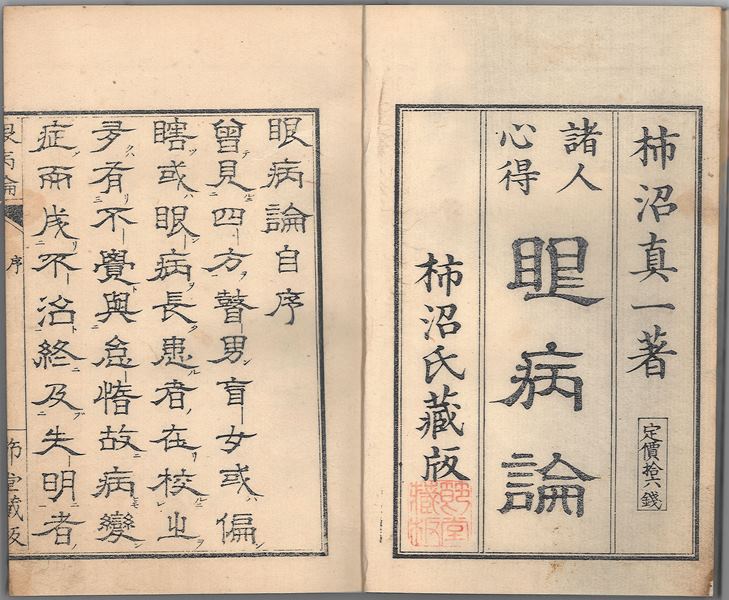 柿沼真一著
定價拾六錢
諸人
心得
眼病論
柿沼氏藏版
眼病論自序
曾見四方瞽男盲女或偏
瞎或眼病長患者在校之
多有不覺與怠惰故病變
症而成不治終及失明者
眼病論
序